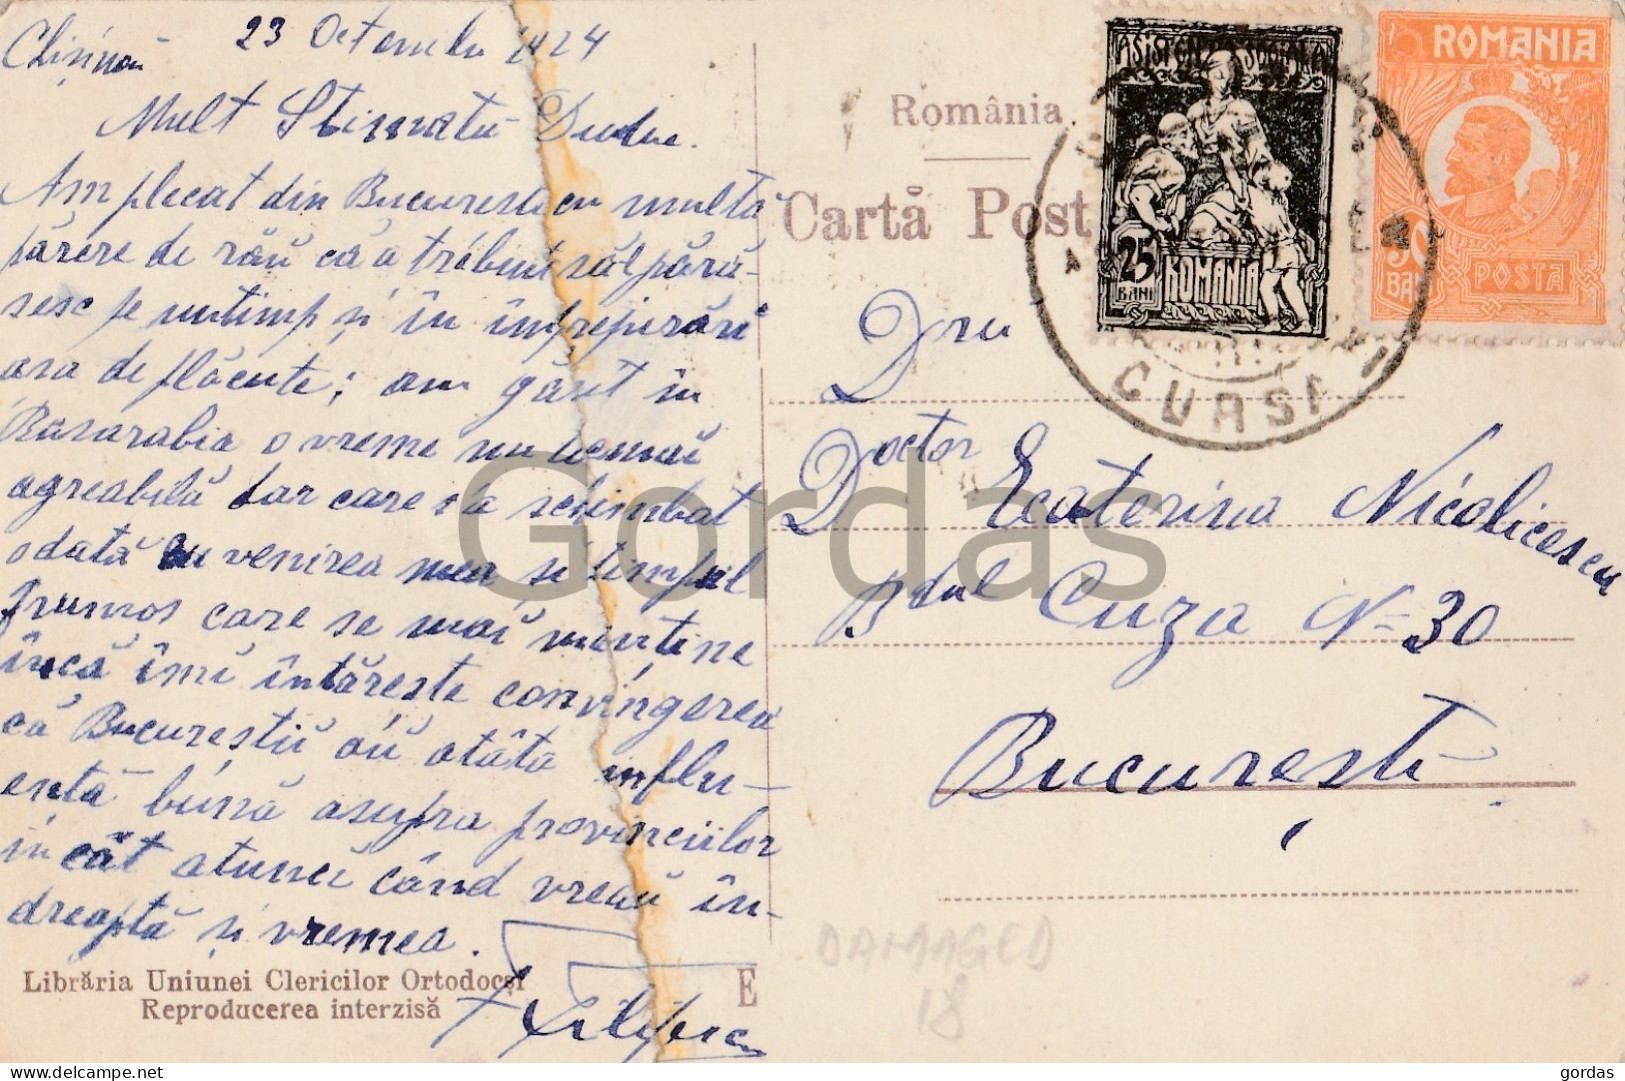 Chișinău 23 Octombr 1924
Mult Stimată Duduc.
Am plecat din București cu multă
părere de rău că a trebuit să-l pără-
sesc pe un timp și în împrejurări
așa de plăcute; am găsit în
Basarabia o vreme nu tocmai
agreabilă dar care s'a schimbat
odată cu venirea mea și timpul
frumos care se mai menține
încă îmi întărește convingerea
că Bucureștii au atâta influ-
ență bună asupra provinciilor
în cât atunci când vreau în-
dreaptă și vremea.
Filipescu
Librăria Uniunei Clericilor Ortodocși
Reproducerea interzisă
E
România
Cartă Post
ASISTENȚA SOCIALA
25
BANI
ROMANIA
ROMANIA
50
BANI
POSTA
CURSA
Dru
Doctor Ecaterina Nicolicescu
Bdul Cuza No 30
București
DAMAGED
18
Gordas
www.delcampe.net
gordas